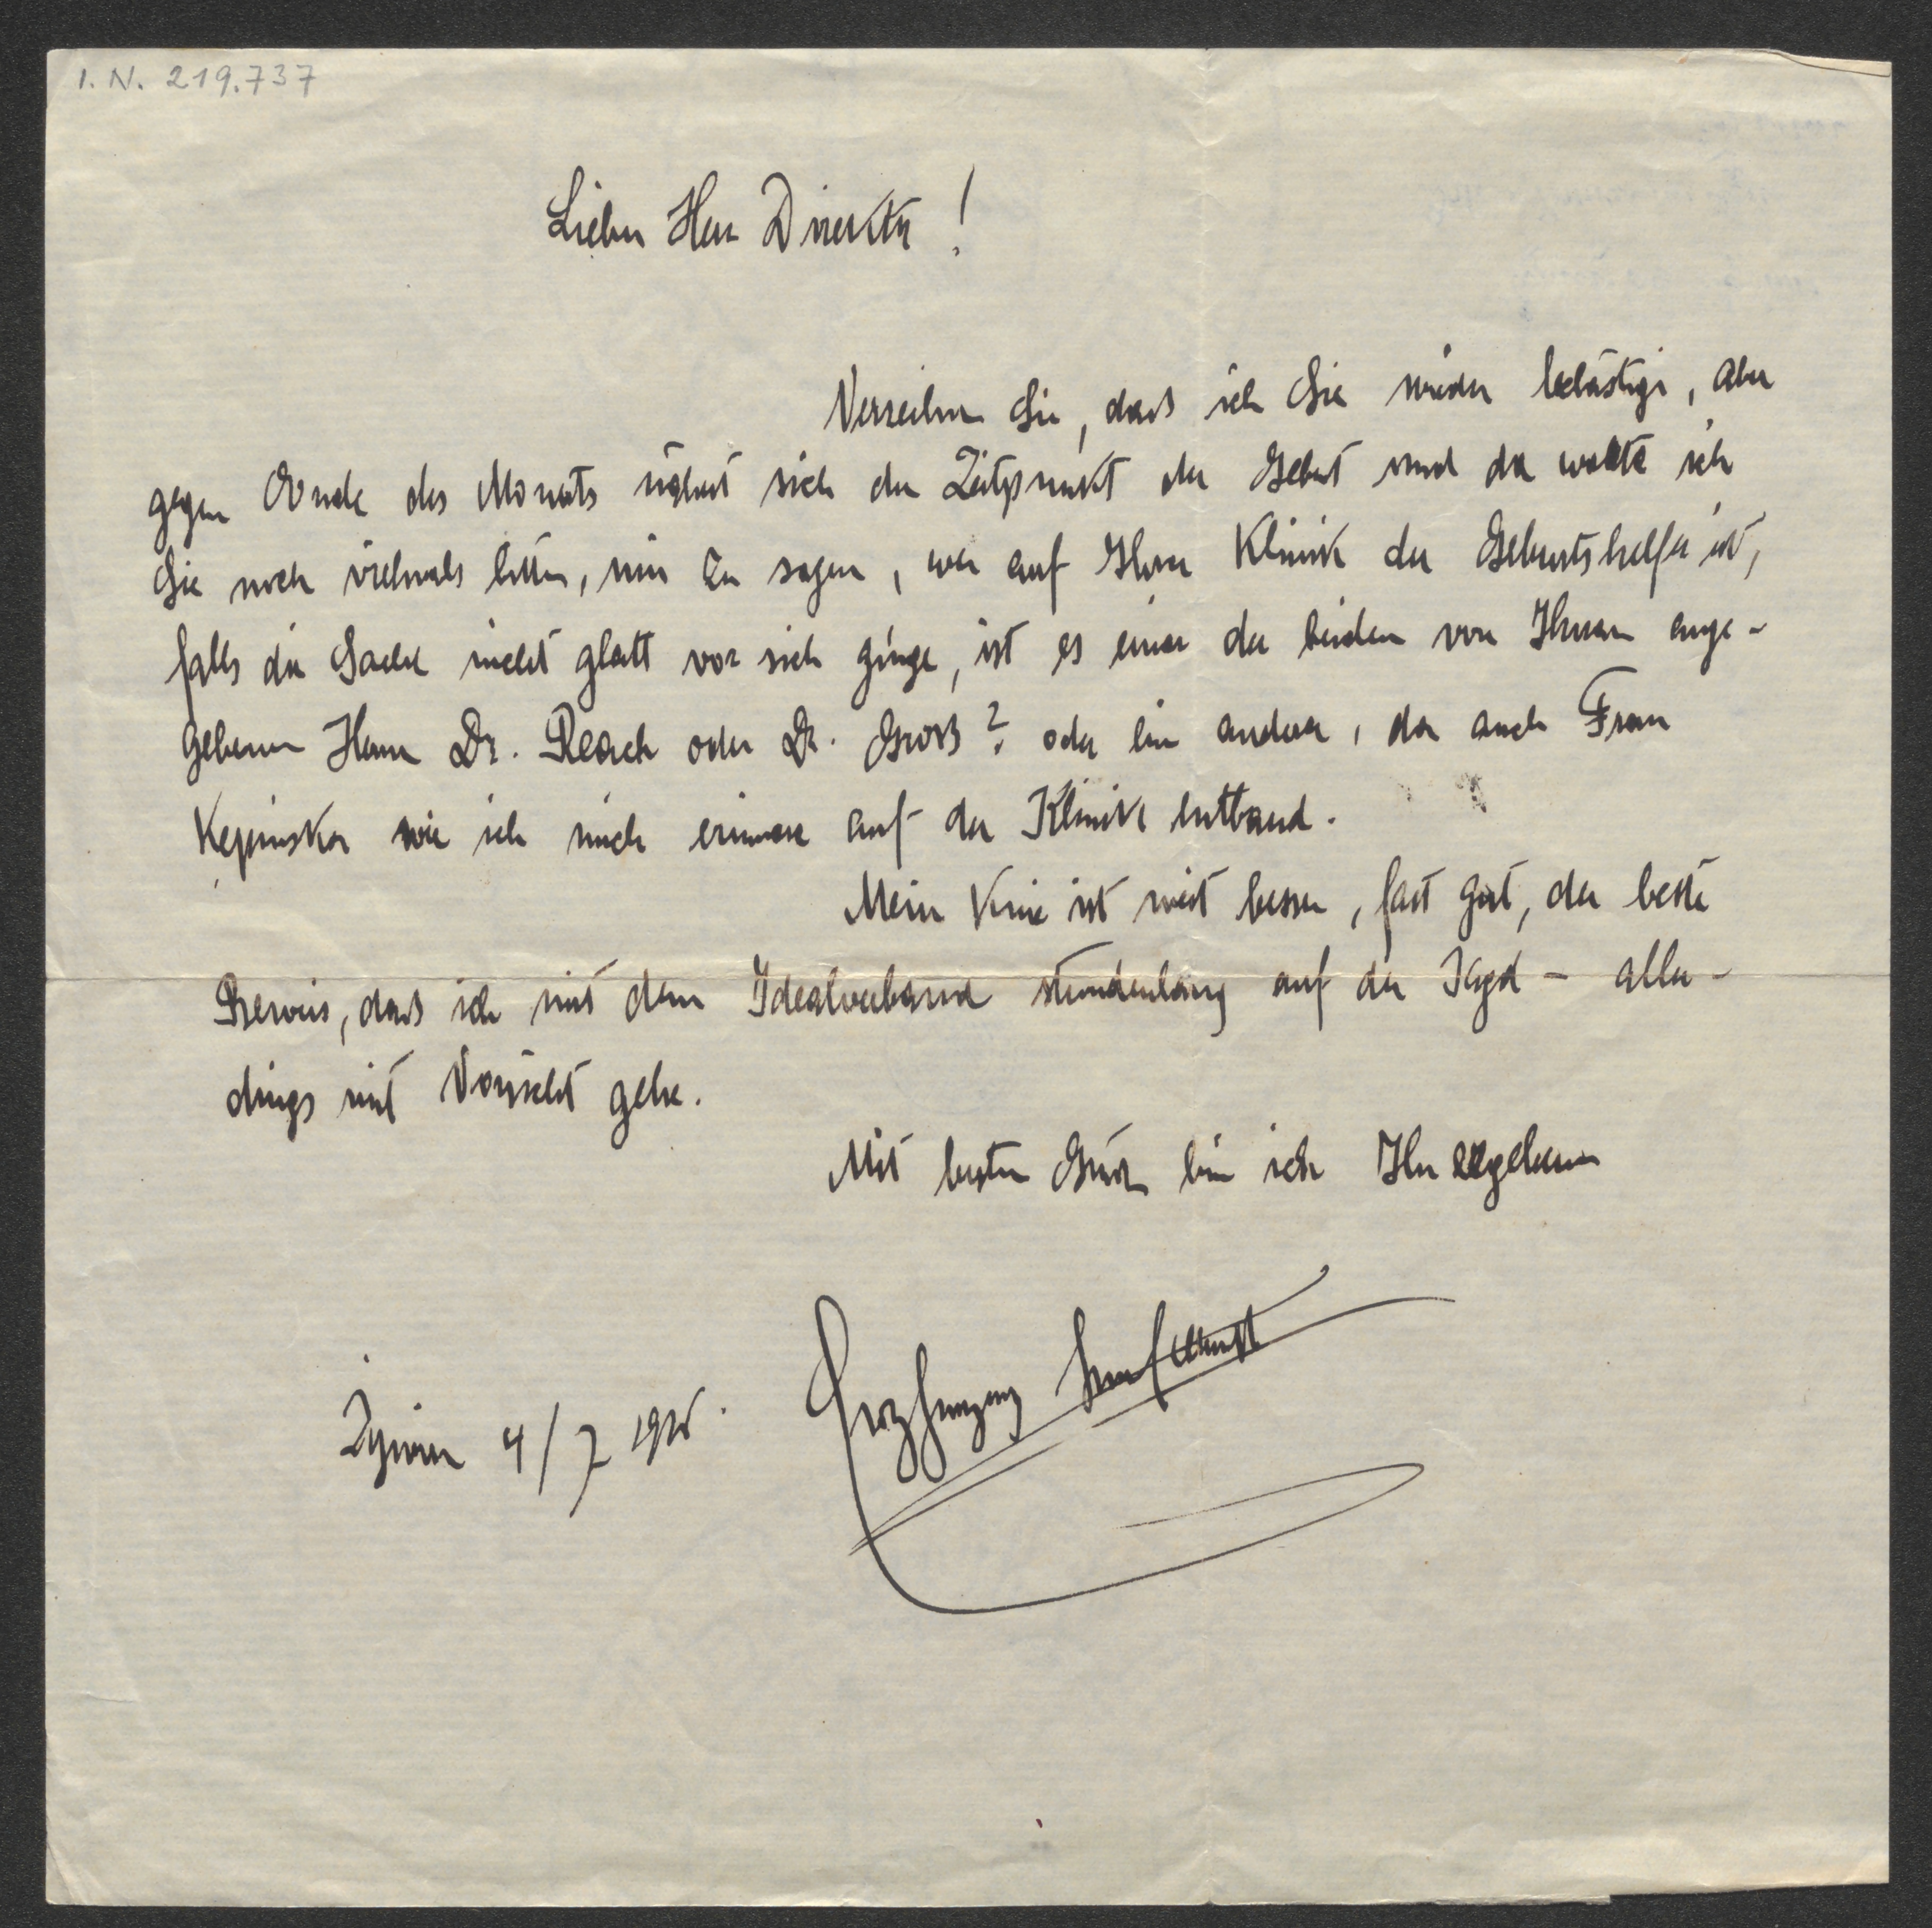 I. N. 219.737
Lieber Herr Direktor!
Verzeihen Sie, dass ich Sie wieder belästige, aber
gegen Ende des Monats nähert sich der Zeitpunkt der Geburt und da wollte ich
Sie noch vielmals bitten, mir zu sagen, wer auf Ihrer Klinik der Geburtshelfer ist,
falls die Sache nicht glatt vor sich ginge, ist es einer der beiden von Ihnen ange-
gebenen Herrn Dr. Reach oder Dr. Gross? oder ein anderer, da auch Frau
Kepinska wie ich mich erinnere auf der Klinik entband.
Mein Knie ist weit besser, fast gut, der beste
Beweis, dass ich mit dem Idealverband stundenlang auf die Jagd - aller-
dings mit Vorsicht gehe.
Mit besten Gruß bin ich Ihr ergebener
4/7